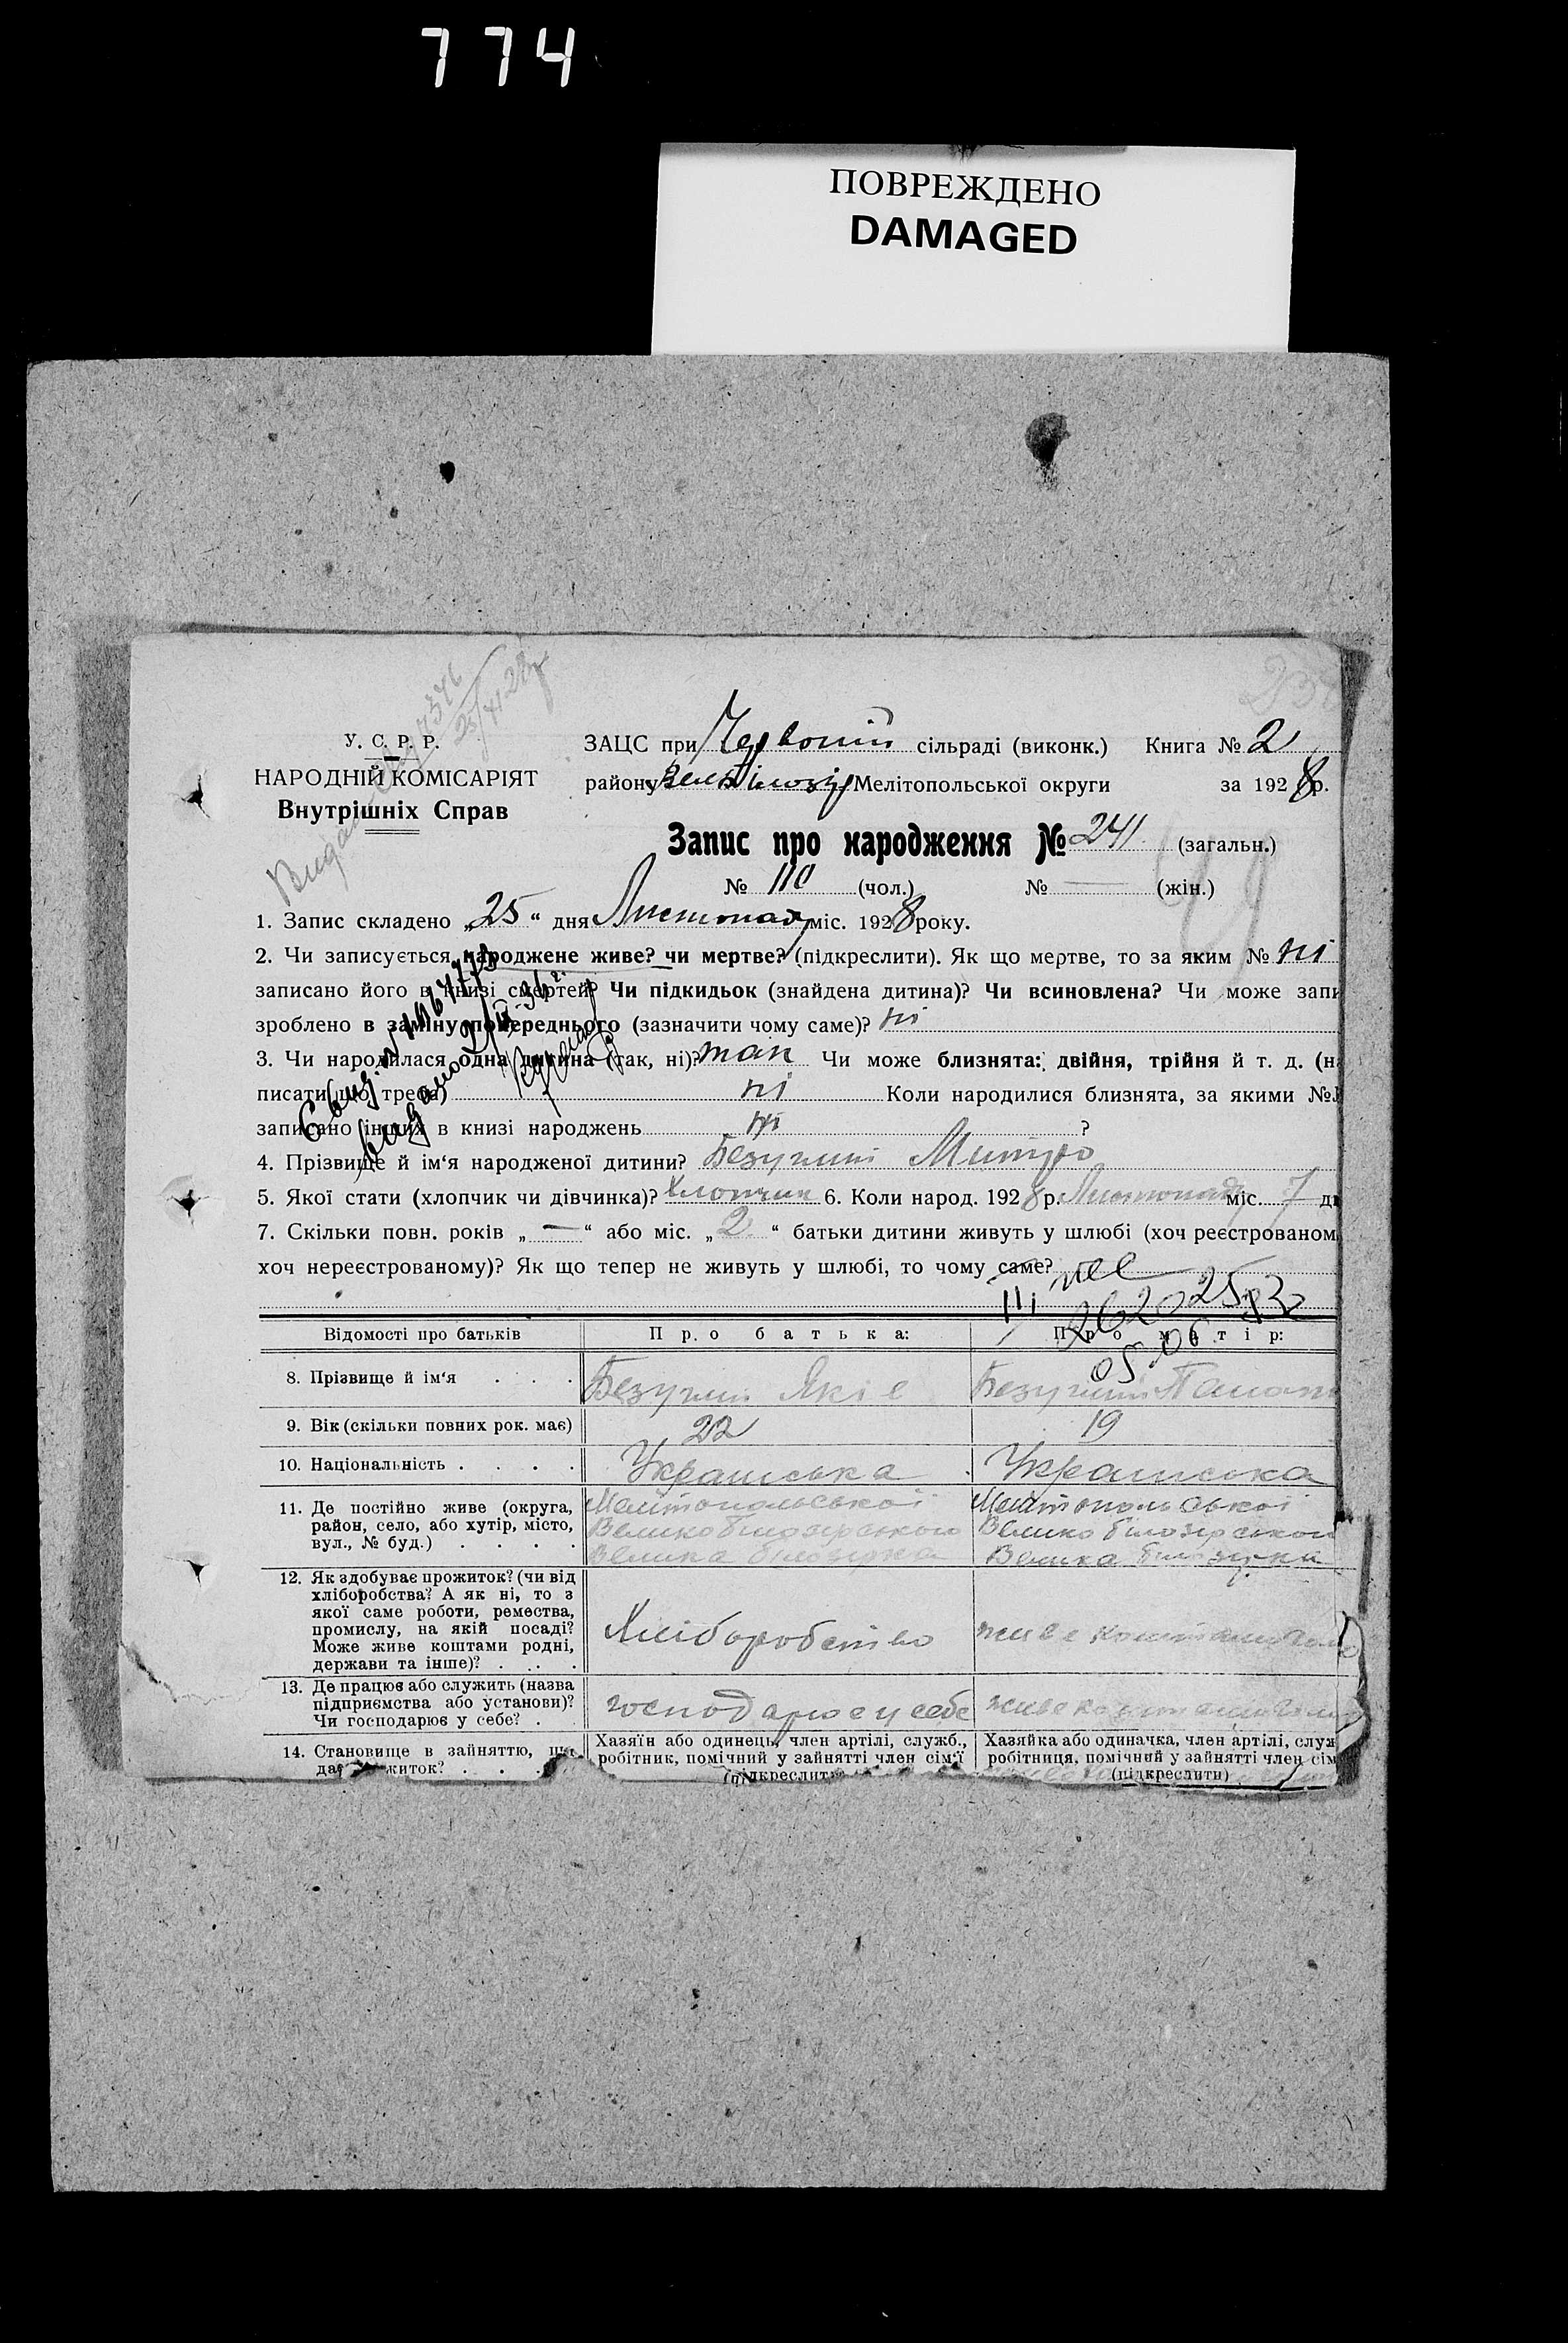 774
ПОВРЕЖДЕНО
DAMAGED
У. С. Р. Р.
НАРОДНІЙ КОМІСАРІЯТ
Внутрішніх Справ
ЗАЦС при Червоній сільраді (виконк.) Книга № 2
району Мелітопольської округи за 1928 р.
Запис про народження № 241 (загальн.)
№ 110 (чол.) № — (жін.)
1. Запис складено „25“ дня Листопад міс. 1928 року.
2. Чи записується народжене живе? чи мертве? (підкреслити). Як що мертве, то за яким № ні
записано його в книзі смертей? Чи підкидьок (знайдена дитина)? Чи всиновлена? Чи може запи
зроблено в заміну попереднього (зазначити чому саме)? ні
3. Чи народилася одна дитина (так, ні)? так Чи може близнята: двійня, трійня й т. д. (на
писати що треба) ні Коли народилися близнята, за якими №№
записано інших в книзі народжень ні ?
4. Прізвище й ім‘я народженої дитини? Митро
5. Якої стати (хлопчик чи дівчинка)? Хлопчик 6. Коли народ. 1928 р. Листопад міс. 7 дн
7. Скільки повн. років „—“ або міс. „2“ батьки дитини живуть у шлюбі (хоч реєстрованом
хоч нереєстрованому)? Як що тепер не живуть у шлюбі, то чому саме?
Відомості про батьків Про батька: Про матір:
8. Прізвище й ім‘я . . .
9. Вік (скільки повних рок. має) 22 19
10. Національність . . . . Українська Українська
11. Де постійно живе (округа,
район, село, або хутір, місто,
вул., № буд.) . . . .
Мелітопольської Мелітопольської
Великобілозірського Великобілозірсько
Велика Білозірка Велика Білозірка
12. Як здобуває прожиток? (чи від
хліборобства? А як ні, то з
якої саме роботи, ремества,
промислу, на якій посаді?
Може живе коштами родні,
держави та інше)? . . .
Хліборобство живе коштами
13. Де працює або служить (назва
підприємства або установи)?
Чи господарює у себе? .
господарює у себе живе коштами
14. Становище в зайняттю, що
дає житок? . . .
Хазяїн або одинець, член артілі, служб.,
робітник, помічний у зайнятті член сім‘ї
(підкреслити)
Хазяйка або одиначка, член артілі, служ
робітниця, помічний у зайнятті член сім
(підкреслити)